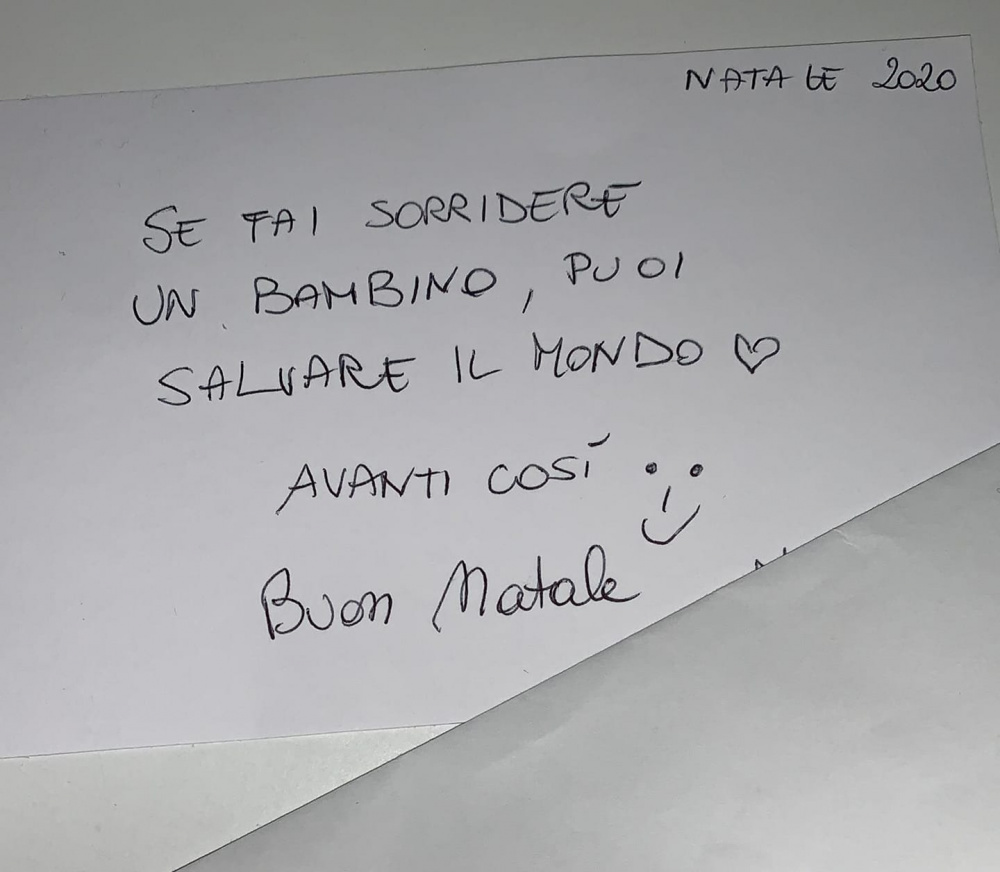 NATALE 2020
SE FAI SORRIDERE
UN BAMBINO, PUOI
SALVARE IL MONDO ♡
AVANTI COSÌ
Buon Natale